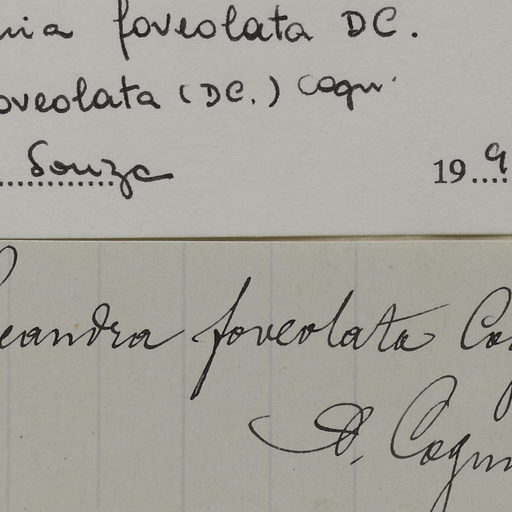 nia foveolata DC.
oveolata (DC.) Cogn.
Souza 19 9
Leandra foveolata Co
A. Cogn